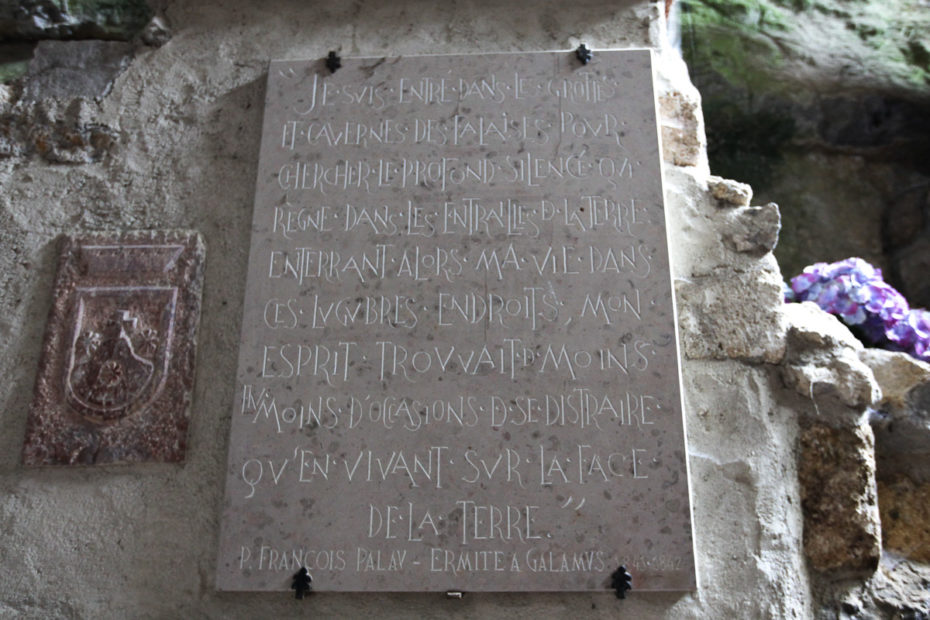 “JE·SUIS·ENTRÉ·DANS·LE·GROTTES
ET·CAVERNES·DES·FALAISES·POUR·
CHERCHER·LE·PROFOND·SILENCE·QUI
REGNE·DANS·LES·ENTRAILLES·D·LA·TERRE·
ENTERRANT·ALORS·MA·VIE·DANS
CES·LUGUBRES·ENDROITS, MON·
ESPRIT·TROUVAIT·D·MOINS·
MOINS·D'OCCASIONS·D·SE·DISTRAIRE·
QU'EN·VIVANT·SUR·LA·FACE·
DE·LA·TERRE.”
P. FRANÇOIS PALAU - ERMITE A GALAMUS